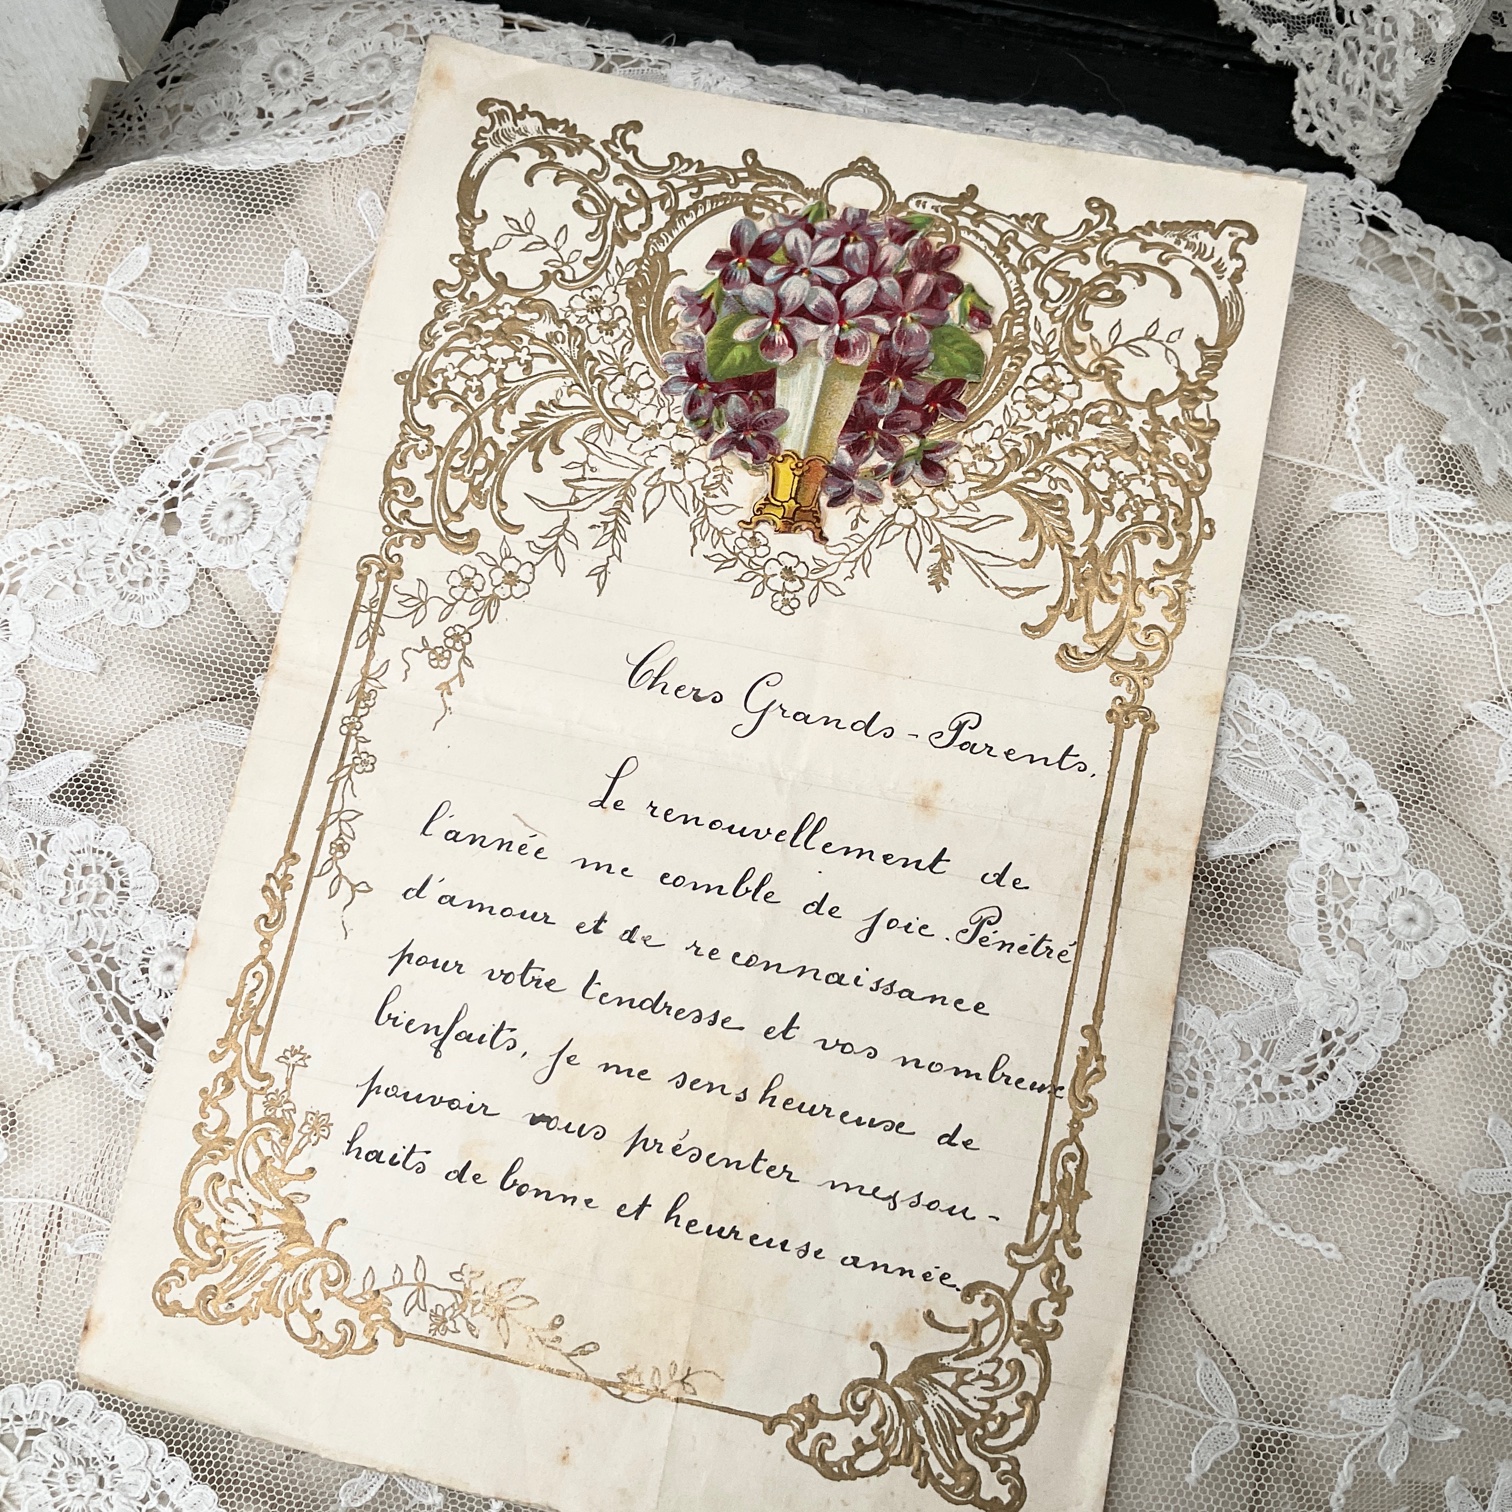 Chers Grands-Parents.
Le renouvellement de
l'année me comble de joie. Pénétré
d'amour et de reconnaissance
pour votre tendresse et vos nombreux
bienfaits, je me sens heureuse de
pouvoir vous présenter mes sou-
haits de bonne et heureuse année.